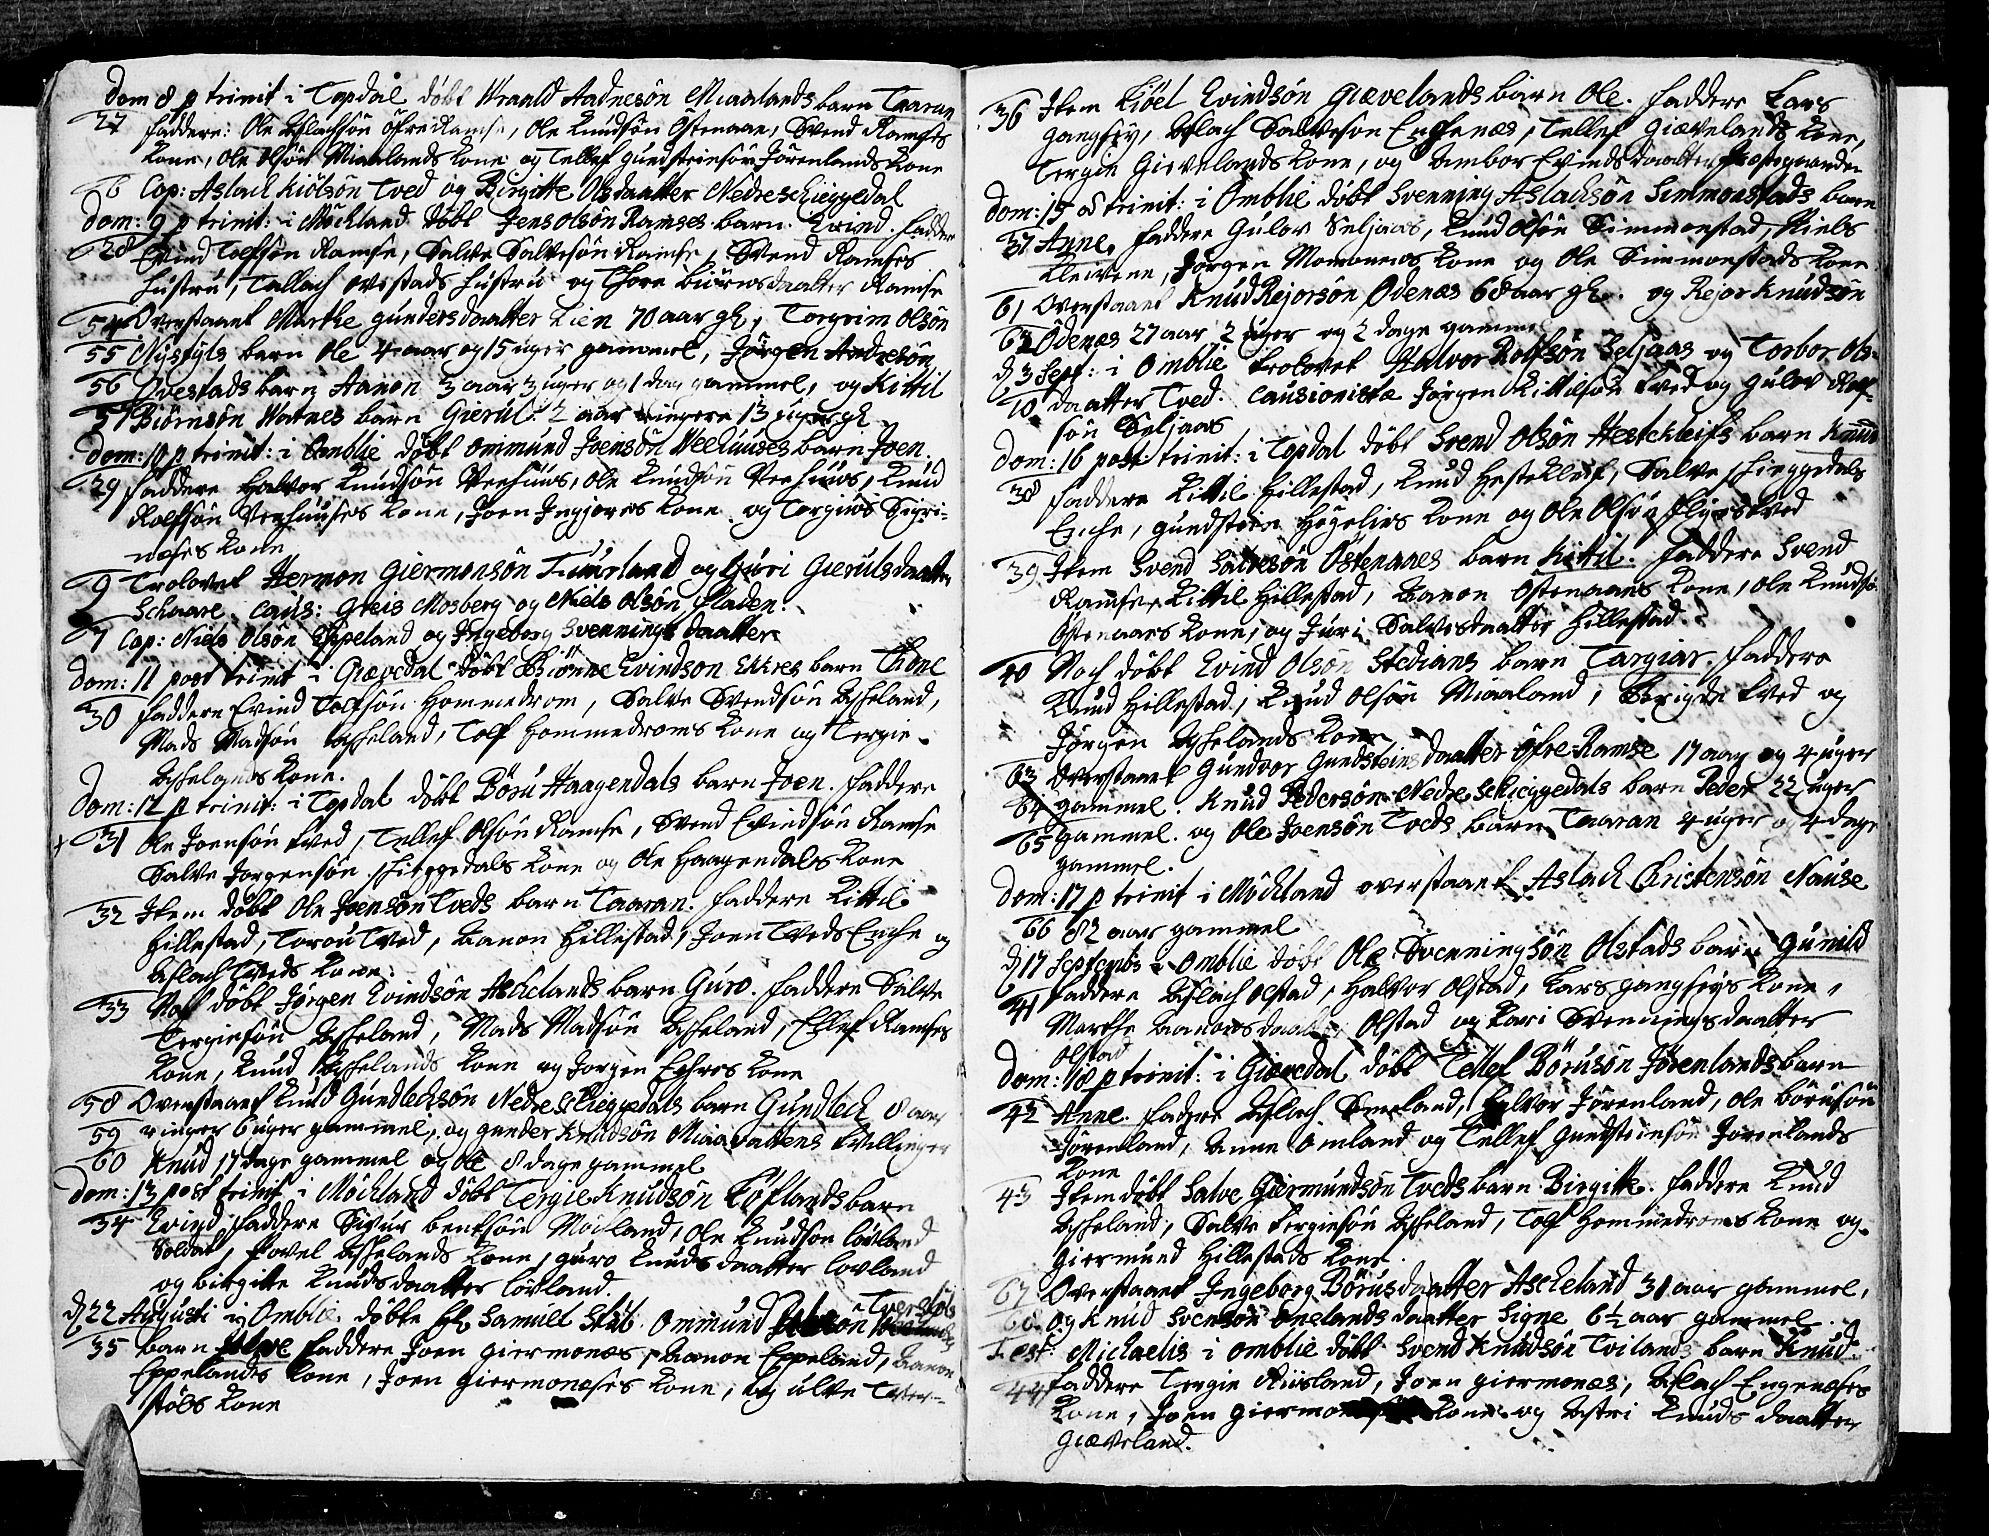 Dom 8 p trinit i Topdal döbt Wraald Aadnesön Miaalands barn Taaran
27 faddere: Ole Aslachsön Öfre Ramse, Ole Knudsön Ostenaae, Svend Ramses
kone, Ole Olsön Miaalands kone og Tellef Gundsteinsön Jörenlands kone
6 Cop: Aslach Kiölsön Tved og Birgitte Olsdaatter Nedre Schieggedal
dom: 9 p trinit: i Möckland döbt Jens Olsön Ramses barn Evind. faddere
28 Evind Tolfsön Ramse, Salve Salvesön Ramse, Svend Ramses
hustru, Tallach Ovestads hustru og Thore Biörnsdaatter Ramse
54 Overstaaet Marthe Gundersdaatter Lien 70 aar gl, Torgrim Olsön
55 Nystöls barn Ole 4 aar og 15 uger gammel, Jörgen Andresön
56 Ovestads barn Aanon 3 aar 3 uger og 1 dag gammel, og Kittil
57 Biörnsön Watnes barn Gierul 2 aar ringere 13 uger gl
dom: 10 p trinit: i Omblie döbt Ommund Joensön Weehuuses barn Joen.
29 faddere Halvor Knudsön Veehuus, Ole Knudsön Veehuus, Knud
Rolfsön Veehuuses kone, Joen Ingjeres kone og Torgius Sigri-
næses kone
9 Trolovet Hermon Giermonsön Fuurland og Guri Gierulsdaatter
Schaare. Caus: Greis Mosberg og Niels Olsön Fladen.
7 Cop: Niels Olsön Eppeland og Ingeborg Svenningsdaatter
Dom: 11 post trinit i Giævedal döbt Biönne Evindson Ekres barn Thone
30 faddere Evind Tolfsön Hommedrom, Salve Svendsön Askeland,
Mads Madsön Askeland, Tolf Hommedroms kone og Tergie
Askelands kone.
Dom: 12 p trinit: i Topdal döbt Böru Haagendals barn Joen. faddere
31 Ole Joensön Tved, Tellef Olsön Ramse, Svend Evindsön Ramse
Salve Jorgensön Schieggedals kone og Ole Haagendals kone
32 Item döbt Ole Joensön Tveds barn Taaran. faddere Kittil
Hillestad, Torou Tved, Aanon Hillestad, Joen Tveds Enche og
Aslach Tveds kone.
33 Noch döbt Jörgen Evindsön Askelands barn Guro. faddere Salve
Tergiesön Askeland, Mads Madsön Askeland, Ellef Ramses
kone, Knud Askelands kone og Jorgen Echres kone
58 Overstaaet Knud Gundlechsön Nedre Schieggedals barn Gundlech 8 aar
59 ringer 6 uger gammel, og Gunder Knudsön Miaavattens tvillinger
60 Knud 17 dage gammel og Ole 8 dage gammel
dom: 13 post trinit i Möckland döbt Tergie Knudsön Löflands barn
34 Evind faddere Sivur Bentsön Möckland, Ole Knudsön lövland
Soldat, Povel Askelands kone, Guro Knudsdaatter lovland
og Birgitte Knudsdaatter lövland.
d 22 Augusti i Omblie döbte Hr Samuel Stub Ommund Tverstöls
35 barn faddere Joen Giermonæs, Aanon Eppeland, Aanon
Eppelands kone, Joen Giermonæses kone, og Ulve Tver-
stöls kone
36 Item Kiöel Evindsön Giævelands barn Ole. faddere Lars
Gangsey, Aslach Salvesøn Engenæs, Tellef Giævelands kone,
Tergie Gievelands kone, og Ambor Evindsdaatter
Dom: 15 p trinit: i Omblie döbt Svenning Aslachsön Simmonstads barn
37 Anne. faddere Gulov Seljaas, Knud Olsön Simmonstad, Niels
Kleivene, Jörgen Momonens kone og Ole Simmonstads kone
61 Overstaaet Knud Rejorsön Ödenæs 68 aar gl. og Rejor Knudsön
62 Ödenæs 27 aar 2 uger og 2 dage gammel
d 3 Sept: i Omblie trolovet Halvor Rolfsön Seljaas og Torbor Ols-
10 daatter Tved. Causionistæ Jörgen Kittilsön Tved og Gulov Rolf-
sön Seljaas
Dom: 16 post trinit: i Topdal döbt Svend Olsön Hestekleifs barn Knud
38 faddere Kittil Hillestad, Knud Hestekleif, Salve Schieggedals
Enche, Gundstein Högelies kone og Ole Olsön
39 Item Svend Salvesön Östenaaes barn Kittil. faddere Svend
Ramse, Kittil Hillestad, Aanon Ostenaaes kone, Ole Knudsö:
Östenaaes kone, og Juri Salvesdaatter Hillestad.
40 Noch döbt Evind Olsön Stedians barn Targiær. faddere
Knud Hillestad, Knud Olsön Miaaland, Tved og
Jörgen Askelands kone
63 Overstaaet Gundvor Gundsteinsdaatter öfre Ramse 17 aar og 4 uger
64 gammel. Knud Pedersön Nedre Schieggedals barn Peder 22 uger
65 gammel. og Ole Joensön Tveds barn Taaran 4 uger og 4 dage
gammel.
Dom: 17 p trinit i Möckland overstaaet Aslach Christensön Nause
66 82 aar gammel
d 17 Septemb: i Omblie döbt Ole Svenningsön Olstads barn Gunild
41 faddere Aslach Olstad, Halvor Olstad, Lars Gangseys kone,
Marthe Aanonsdaatter Olstad og Kari Svenningsdaatter
Olstad
Dom: 18 p trinit: i Giævedal döbt Tellef Börusön Jörenlands barn
42 Anne. fadere Aslach Smeland, Halvor Jörenland, Ole Börusön
Jörenland, Anne Omland og Tellef Gundsteinsön Jorenlands
kone
43 Item döbt Salve Giermundsön Tveds barn Birgitte. faddere Knud
Askeland, Salve Tergiesön Askeland, Tolf Hommedroms kone og
Giermund Hillestads kone.
67 Overstaaet Ingeborg Börusdaatter Ascheland 31 aar gammel,
68 og Knud Svensön Onelands daatter Signe 6½ aar gammel.
Fest: Michaelis i Omblie döbt Svend Knudsön Tvilands barn Knud.
44 faddere Tergie Riisland, Joen Giermonæs, Aslach Engenæses
kone, Joen kone og Astri Knudsdaatter
Giæveland.